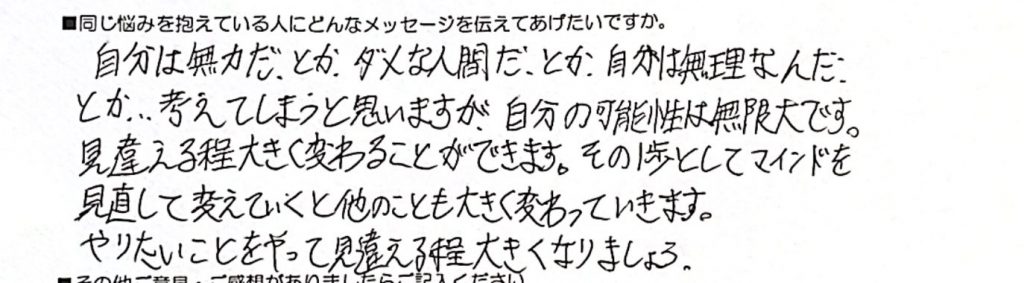 ■同じ悩みを抱えている人にどんなメッセージを伝えてあげたいですか。
自分は無力だ、とか、ダメな人間だ、とか、自分は無理なんだ、
とか…考えてしまうと思いますが、自分の可能性は無限大です。
見違える程大きく変わることができます。その1歩としてマインドを
見直して変えていくと他のことも大きく変わっていきます。
やりたいことをやって見違える程大きくなりましょう。
■その他ご意見・ご感想がありましたらご記入ください